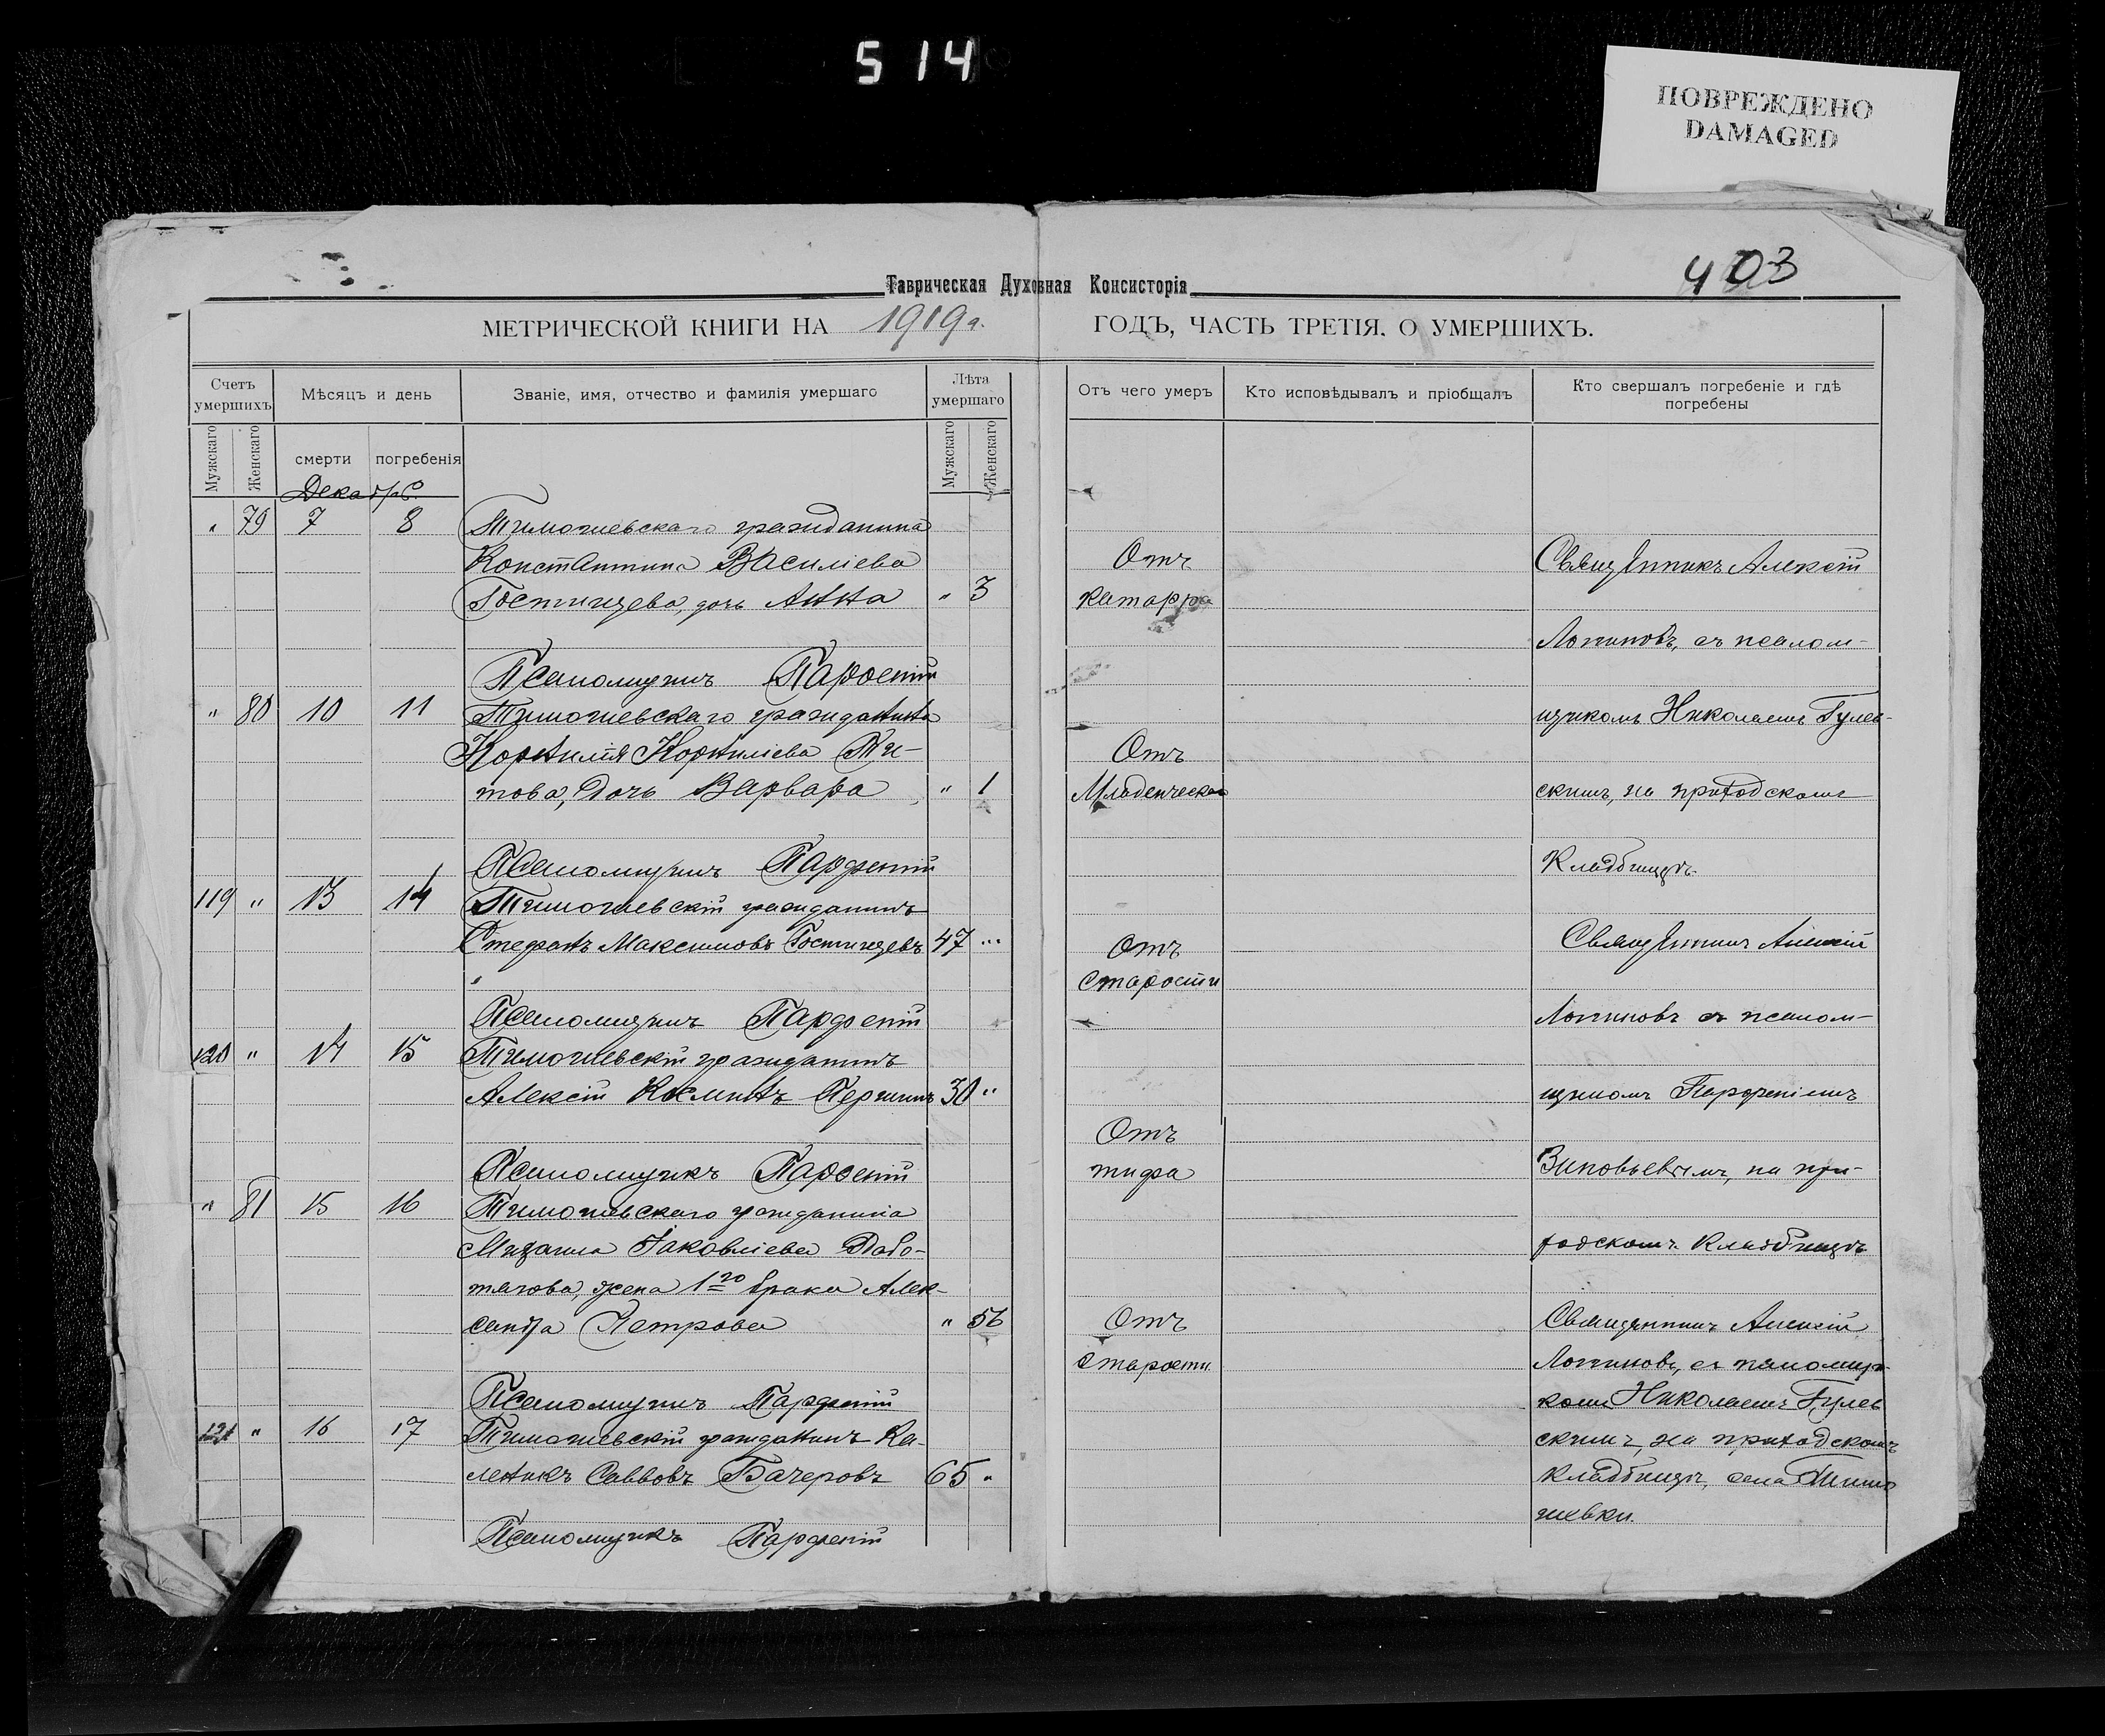 514
ПОВРЕЖДЕНО
DAMAGED
403
Таврическая Духовная Консисторія
МЕТРИЧЕСКОЙ КНИГИ НА 1919 г. ГОДЪ, ЧАСТЬ ТРЕТІЯ. О УМЕРШИХЪ.
Счетъ умершихъ
Мѣсяцъ и день
Званіе, имя, отчество и фамилія умершаго
Лѣта умершаго
Отъ чего умеръ
Кто исповѣдывалъ и пріобщалъ
Кто свершалъ погребеніе и гдѣ погребены
Мужскаго
Женскаго
смерти
погребенія
Мужскаго
Женскаго
Декабрь.
" 79 7 8 Тимошевскаго гражданина
Константина Василіева
Гостищева, дочь Анна " 3
Псаломщикъ Парѳеній
" 80 10 11 Тимошевскаго гражданина
Корнилія Корниліева Ти-
това, дочь Варвара " 1
Псаломщикъ Парфеній
119 " 13 14 Тимошевскій гражданинъ
Стефанъ Максимовъ Гостищевъ 47 "
Псаломщикъ Парфеній
120 " 14 15 Тимошевскій гражданинъ
Алексій 30 "
Псаломщикъ Парѳеній
" 81 15 16 Тимошевскаго гражданина
Михаила Іаковліева
жена 1го брака Алек-
сандра Петрова " 56
Псаломщикъ Парфеній
121 " 16 17 Тимошевскій гражданинъ Ка-
леникъ Саввовъ Бачеровъ 65 "
Псаломщикъ Парфеній
Отъ
катарра
Отъ
Младенческой
Отъ
старости
Отъ
тифа
Отъ
старости
Священникъ Алексій
Логиновъ, съ псалом-
щикомъ Николаемъ Гулев-
скимъ, на приходскомъ
кладбищѣ.
Священникъ Алексій
Логиновъ съ псалом-
щикомъ Парфеніемъ
Зиновьевымъ, на при-
ходскомъ кладбищѣ
Священникъ Алексій
Логиновъ, съ псаломщи-
комъ Николаемъ Гулев
скимъ, на приходскомъ
кладбищѣ, села Тимо
шевки.